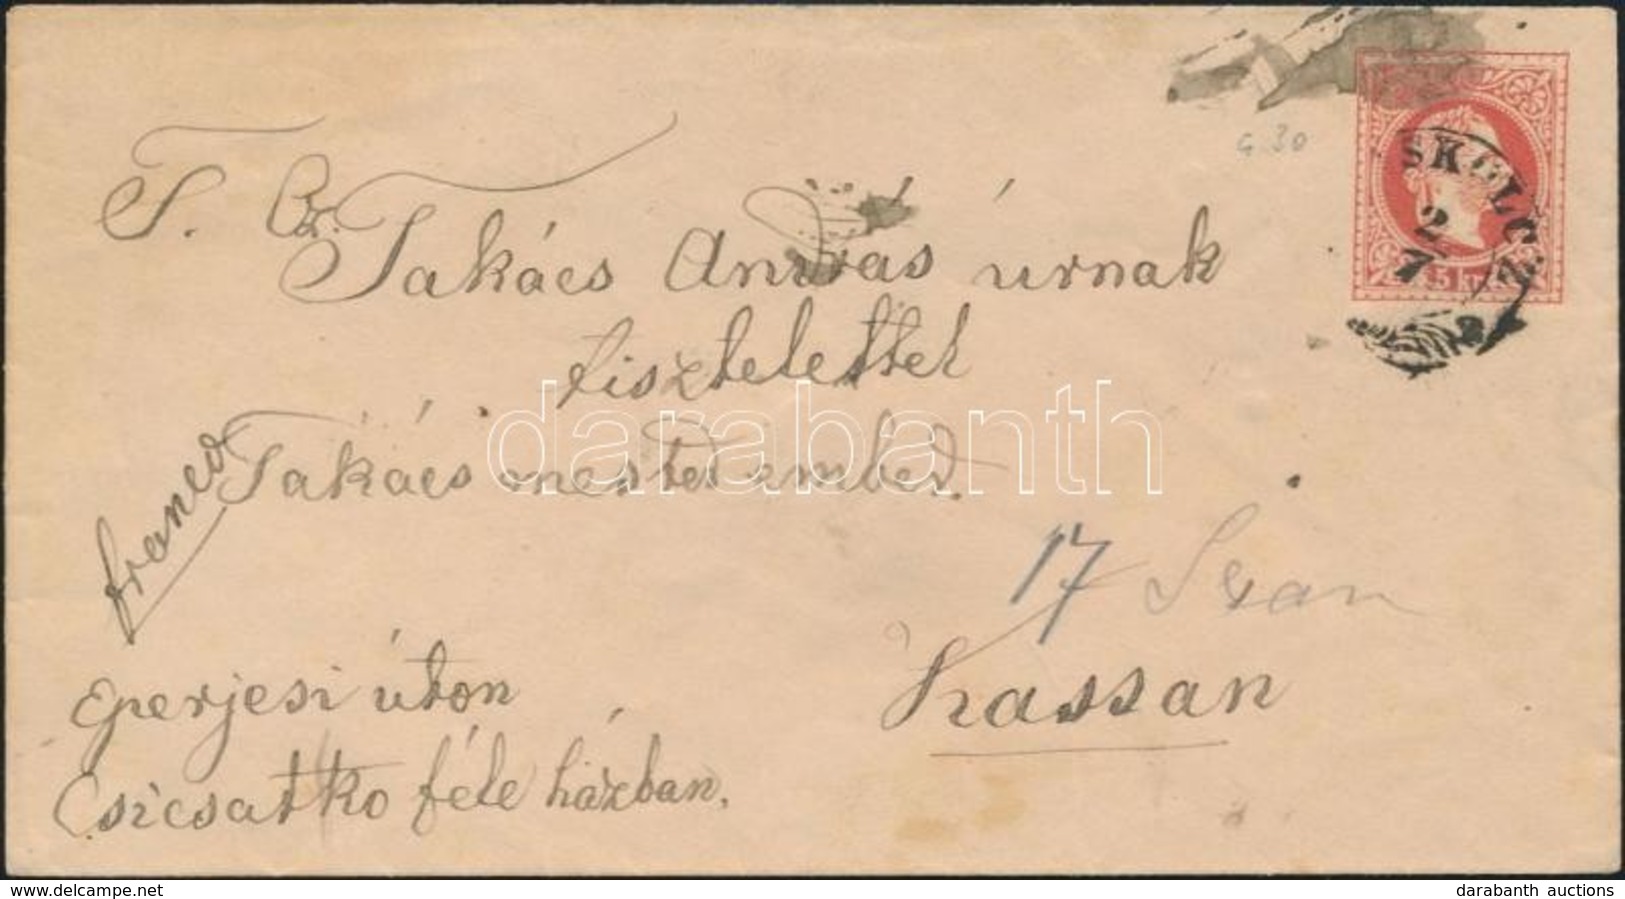 G. 30
SKOLCZ.
2
7
5 kr
T. Cz.
Takács András úrnak
tisztelettel
Takács mester ember.
franco
17
Kassan
eperjesi úton
Csicsatko féle házban.
darabanth
© www.delcampe.net
darabanth auctions